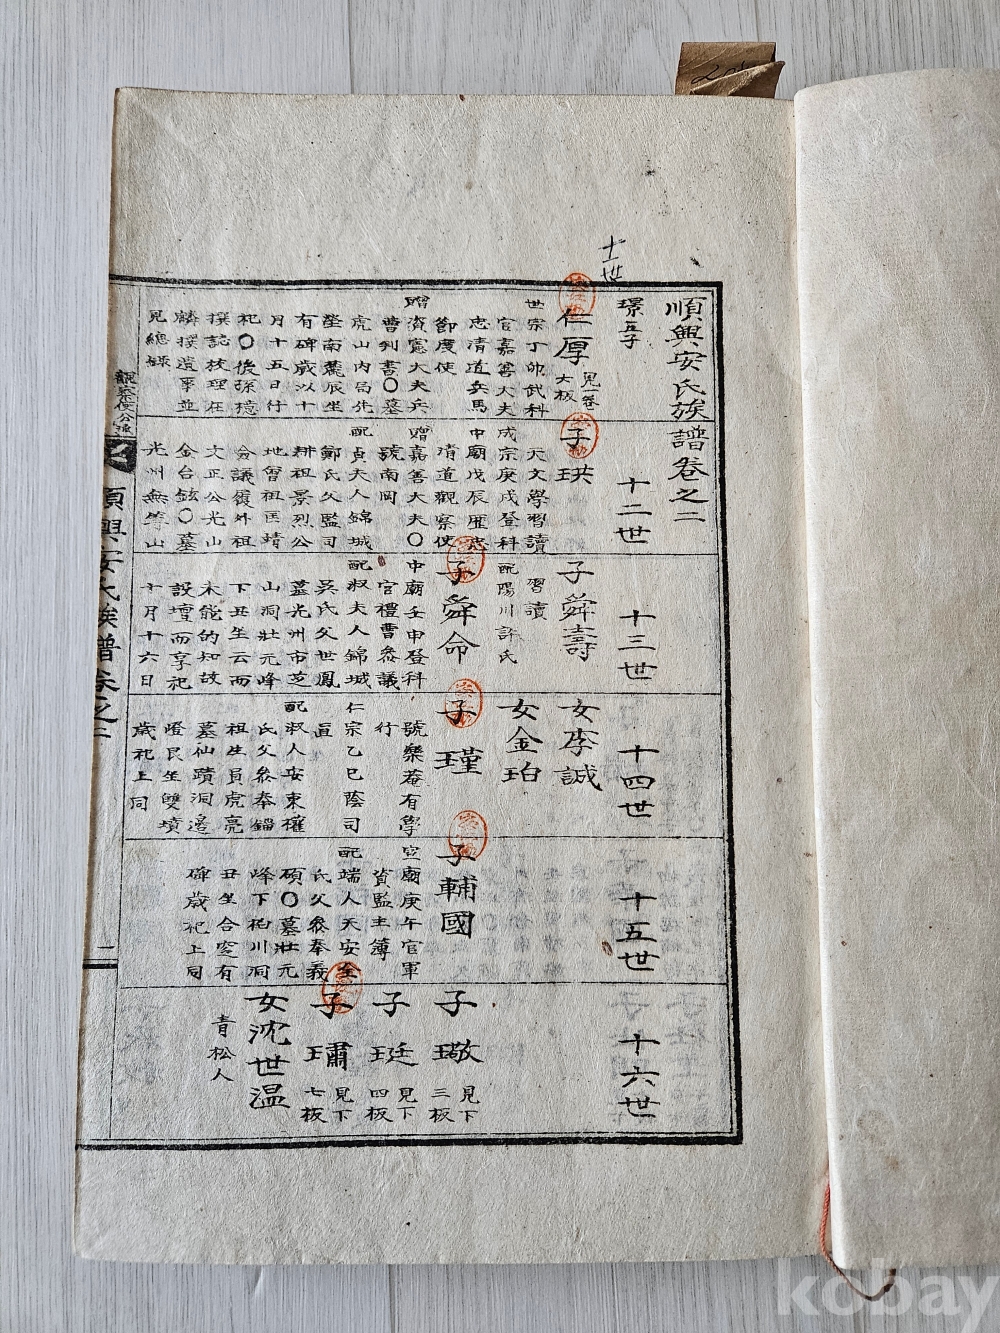 順興安氏族譜卷之二
十一世
璟五子
仁厚
見一卷
六板
世宗丁卯武科
官嘉善大夫
忠清道兵馬
節度使
贈資憲大夫兵
曹判書〇墓
虎山內局先
塋南麓辰坐
有碑歲以十
月十五日行
祀〇後孫
撰誌校理任
麟撰遺事並
見總錄
十二世
子珙
天文學習讀
成宗庚戌登科
中廟戊辰
清道觀察使
贈嘉善大夫〇
號南岡
配貞夫人錦城
鄭氏父監司
耕祖景烈公
地曾祖匡靖
僉議履外祖
文正公光山
金台鉉〇墓
光州無等山
十三世
子舜壽
習讀
配陽川許氏
子舜命
中廟壬申登科
官禮曹參議
配淑夫人錦城
吳氏父世鳳
墓光州市芝
山洞壯元峰
下丑坐云而
未能的知故
設壇而享祀
十月十六日
十四世
女李誠
女金珀
子瑾
號樂菴有學
行
仁宗乙巳蔭司
直
配淑人安東權
氏父參奉錙
祖生員虎亮
墓仙蹟洞邊
嶝艮坐雙墳
歲祀上同
十五世
子輔國
宣廟庚午官軍
資監主簿
配端人天安全
氏父參奉義
碩〇墓壯元
峰下柏川洞
丑坐合窆有
碑歲祀上同
十六世
子璥
見下
三板
子珽
見下
四板
子璛
見下
七板
女沈世溫
青松人
觀察使公派
順興安氏族譜卷之二
一
kobay